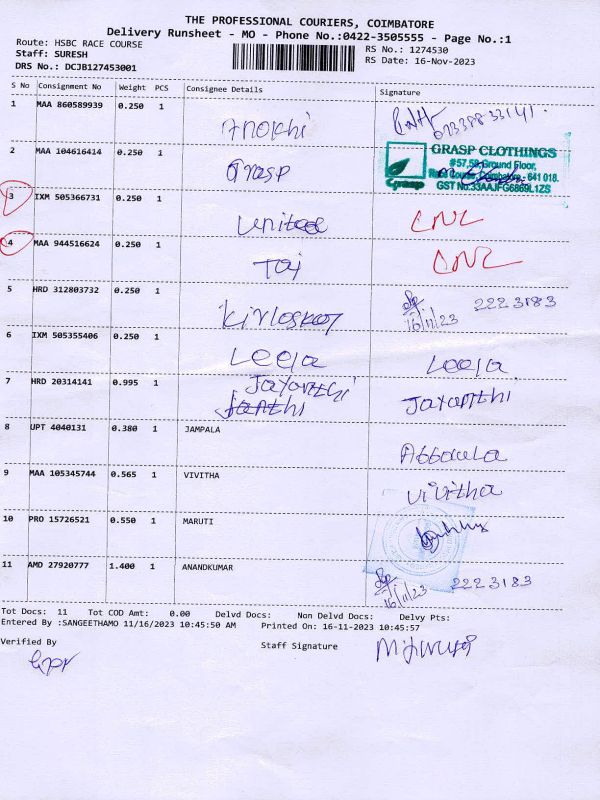 THE PROFESSIONAL COURIERS, COIMBATORE
Delivery Runsheet - MO - Phone No.:0422-3505555 - Page No.:1
Route: HSBC RACE COURSE
RS No.: 1274530
Staff: SURESH
RS Date: 16-Nov-2023
DRS No.: DCJB127453001
S No Consignment No Weight PCS Consignee Details Signature
1 MAA 860589939 0.250 1 Anokhi
2 MAA 104616414 0.250 1 Grasp
GRASP CLOTHINGS
#57,58,Ground Floor,
Race Course, Coimbatore - 641 018.
GST No:33AAJFG6869L1ZS
Grasp
3 IXM 505366731 0.250 1 United CNL
4 MAA 944516624 0.250 1 Taj CNL
5 HRD 312803732 0.250 1 Kirloskar 16/11/23 2223183
6 IXM 505355406 0.250 1 Leela Leela
7 HRD 20314141 0.995 1 Jayanthi Jayanthi
8 UPT 4040131 0.380 1 JAMPALA
9 MAA 105345744 0.565 1 VIVITHA Vivitha
10 PRO 15726521 0.550 1 MARUTI
11 AMD 27920777 1.400 1 ANANDKUMAR 16/11/23 2223183
Tot Docs: 11 Tot COD Amt: 0.00 Delvd Docs: Non Delvd Docs: Delvy Pts:
Entered By :SANGEETHAMO 11/16/2023 10:45:50 AM Printed On: 16-11-2023 10:45:57
Verified By
Staff Signature